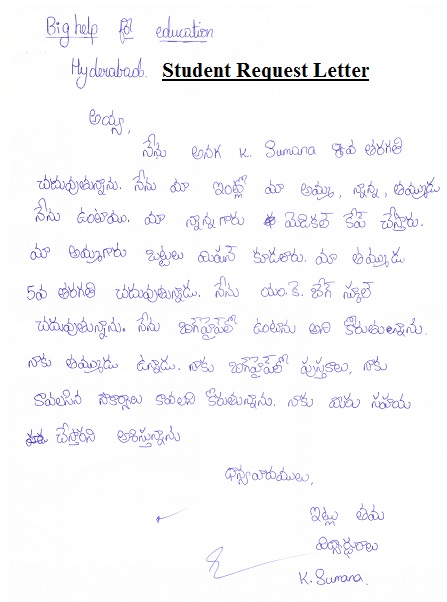 Big help for education
Hyderabad. Student Request Letter
అయ్యా,
నేను అనగ K. Sumana 8వ తరగతి
చదువుతున్నాను. నేను మా ఇంట్లో మా అమ్మ, నాన్న, తమ్ముడు
నేను ఉంటాము. మా నాన్న గారు మెడికల్ కేప్ చేస్తారు.
మా అమ్మగారు బట్టలు మిషన్ కుడతారు. మా తమ్ముడు
5వ తరగతి చదువుతున్నాడు. నేను యం.కె. బేగ్ స్కూల్
చదువుతున్నాను. నేను బిగ్‌హెల్ప్‌లో ఉంటాను అని కోరుతున్నాను.
నాకు తమ్ముడు ఉన్నాడు. నాకు బిగ్‌హెల్ప్‌లో పుస్తకాలు, నాకు
కావలసిన సౌకర్యాలు కావలని కోరుతున్నాను. నాకు మీరు సహాయ
చేస్తారని ఆశిస్తున్నాను
ధన్యవాదములు,
ఇట్లు తమ
విద్యార్థురాలు
K. Sumana.